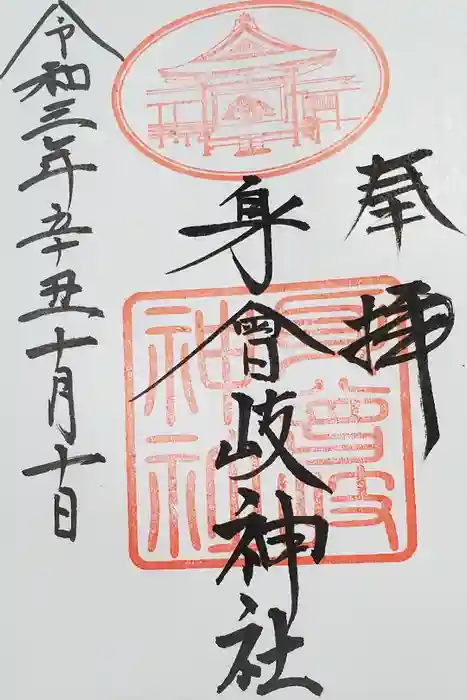 奉拝
身曾岐神社
令和三年辛丑十月十日
身曾岐神社